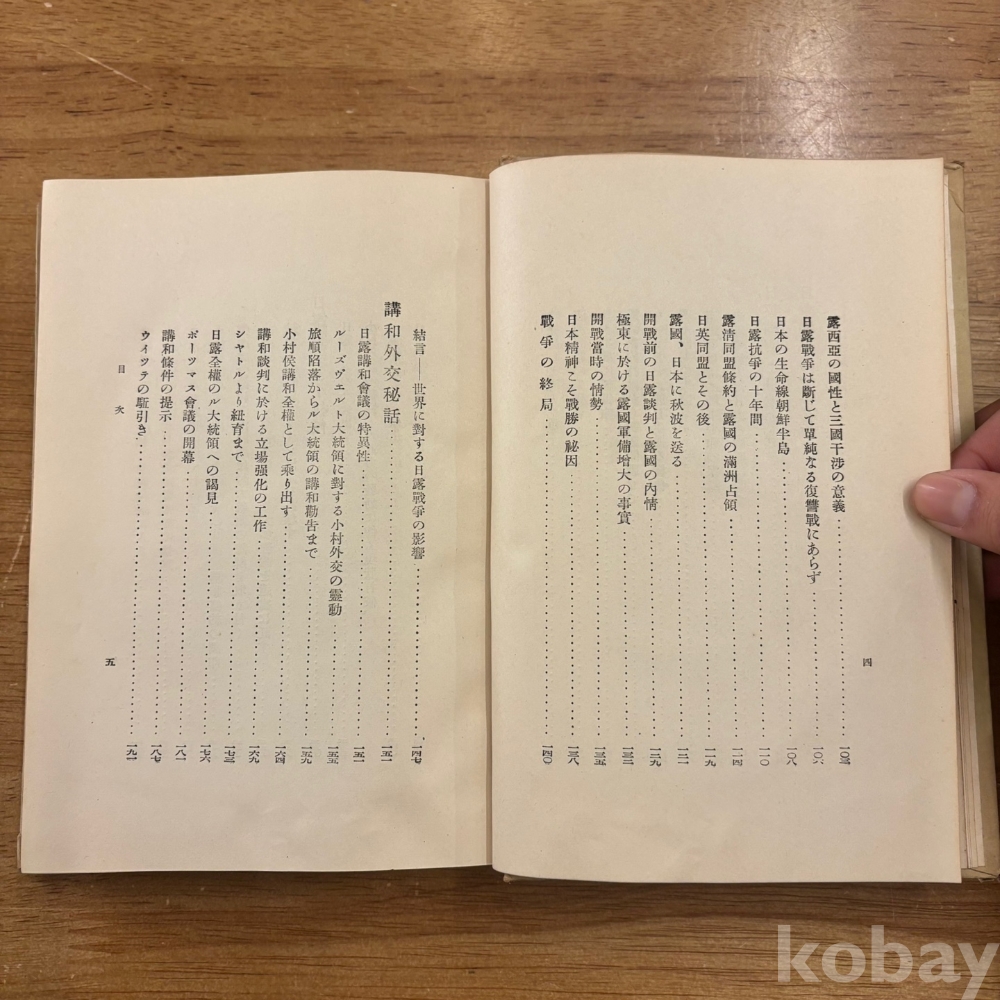 露西亞の國性と三國干渉の意義……一〇三
日露戰爭は斷じて單純なる復讐戰にあらず……一〇六
日本の生命線朝鮮半島……一〇八
日露抗爭の十年間……一一〇
露淸同盟條約と露國の滿洲占領……一一四
日英同盟とその後……一一九
露國、日本に秋波を送る……一二一
開戰前の日露談判と露國の內情……一二九
極東に於ける露國軍備增大の事實……一三二
開戰當時の情勢……一三五
日本精神こそ戰勝の祕因……一三八
戰爭の終局……一四〇
四
結言——世界に對する日露戰爭の影響……一四七
講和外交秘話……一五一
日露講和會議の特異性……一五一
ルーズヴエルト大統領に對する小村外交の靈動……一五五
旅順陷落からル大統領の講和勸吿まで……一五九
小村侯講和全權として乘り出す……一六四
講和談判に於ける立場强化の工作……一六九
シヤトルより紐育まで……一七三
日露全權のル大統領への謁見……一七六
ポーツマヌ會議の開幕……一八一
講和條件の提示……一八七
ウイツテの駈引き……一九一
目次
五
kobay